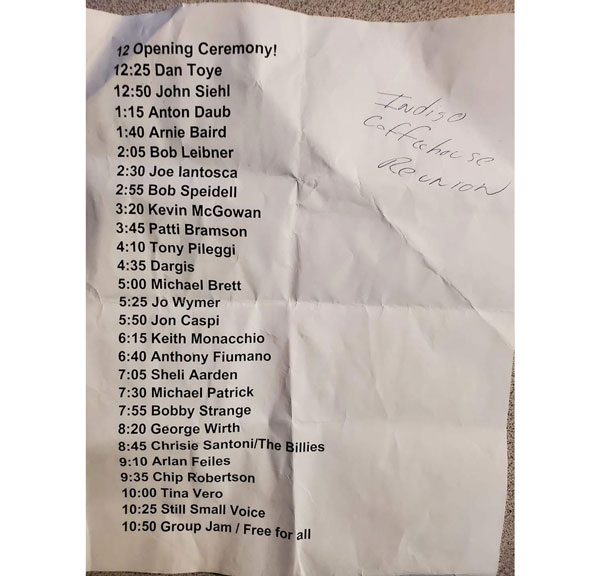 12 Opening Ceremony!
12:25 Dan Toye
12:50 John Siehl
1:15 Anton Daub
1:40 Arnie Baird
2:05 Bob Leibner
2:30 Joe Iantosca
2:55 Bob Speidell
3:20 Kevin McGowan
3:45 Patti Bramson
4:10 Tony Pileggi
4:35 Dargis
5:00 Michael Brett
5:25 Jo Wymer
5:50 Jon Caspi
6:15 Keith Monacchio
6:40 Anthony Fiumano
7:05 Sheli Aarden
7:30 Michael Patrick
7:55 Bobby Strange
8:20 George Wirth
8:45 Chrisie Santoni/The Billies
9:10 Arlan Feiles
9:35 Chip Robertson
10:00 Tina Vero
10:25 Still Small Voice
10:50 Group Jam / Free for all
Indigo
Coffeehouse
Reunion